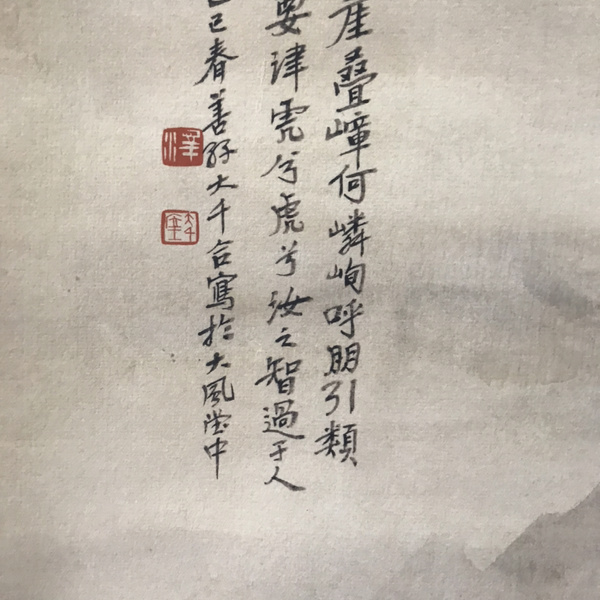 崖疊嶂何嶙峋呼朋引類
要津虎兮虎兮汝之智過于人
己巳春善孖大千合寫於大風堂中